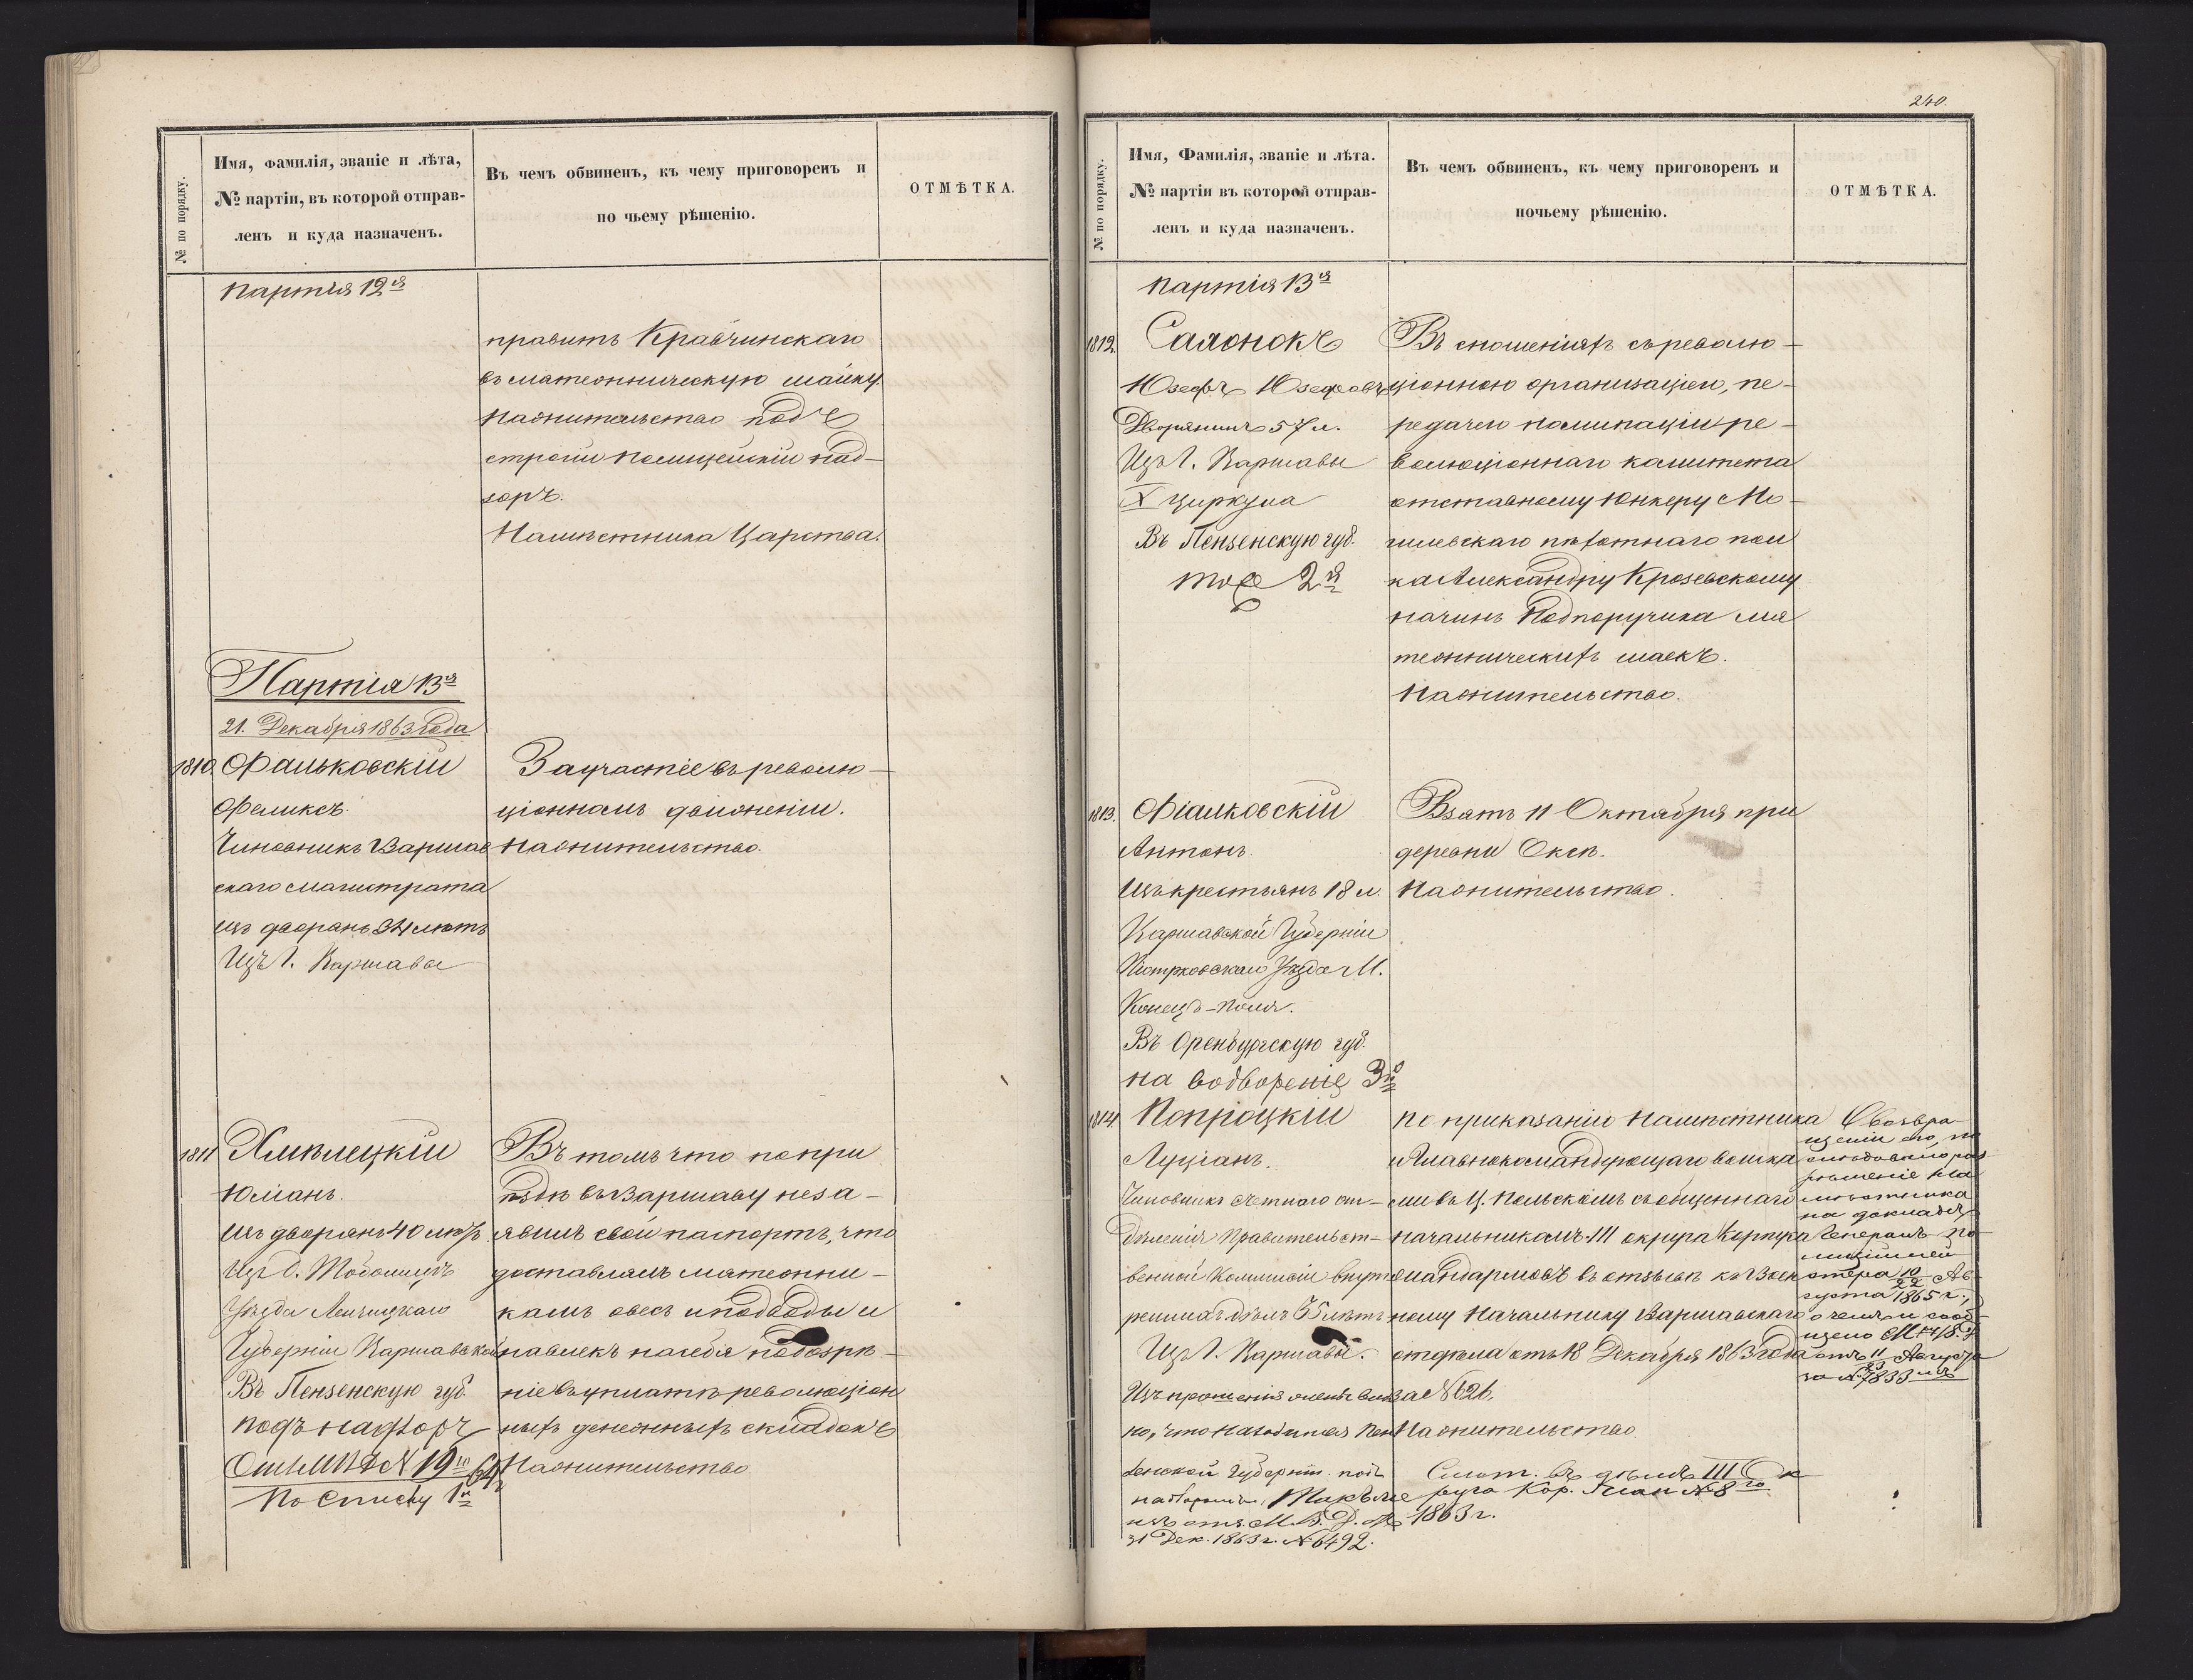 № по порядку.
Имя, фамилія, званіе и лѣта,
№ партіи, въ которой отправ-
ленъ и куда назначенъ.
Въ чемъ обвиненъ, къ чему приговоренъ и
по чьему рѣшенію.
ОТМѢТКА.
Партія 12я
править Кравчинскаго
въ мятежническую шайку.
На жительство подъ
строгій полицейскій над-
зоръ.
Намѣстника Царства.
Партія 13я
21. Декабря 1863 года
1810. Фальковскій
Феликсъ.
Чиновникъ Варшав
скаго магистрата
изъ дворянъ 34 лѣтъ
Изъ Г. Варшавы
За участіе въ револю-
ціонномъ движеніи.
На жительство.
1811 Хмѣлецкій
Юліанъ.
Изъ дворянъ 40 лѣтъ.
Уѣзда Ленчицкаго
Губерніи Варшавской
Въ Пензенскую губ.
подъ надзоръ
По Списку 1й
Въ томъ что по при
ѣздѣ въ Варшаву не за-
явилъ свой паспортъ, что
доставлялъ мятежни-
камъ овесъ и подводы и
навлекъ на себя подозрѣ-
ніе въ уплатѣ революціон
ныхъ денежныхъ складокъ
На жительство
240.
№ по порядку.
Имя, Фамилія, званіе и лѣта.
№ партіи въ которой отправ-
ленъ и куда назначенъ.
Въ чемъ обвиненъ, къ чему приговоренъ и
почьему рѣшенію.
ОТМѢТКА.
Партія 13я
1812. Салонокъ
Юзефъ Юзефовъ
Дворянинъ 57 л.
Изъ Г. Варшавы
X циркула
Въ Пензенскую губ.
тоже 2й
Въ сношеніяхъ съ револю-
ціонною организаціею, пе-
редачею номинаціи ре-
волюціоннаго комитета
отставному Юнкеру Мо-
гилевскаго пѣхотнаго пол
ка Александру Крозевскому
на чинъ Подпоручика мя
тежническихъ шаекъ.
На жительство.
1813. Фіалковскій
Антонъ.
Изъ крестьянъ 18 л.
Варшавской Губерніи
Піотрковскаго Уѣзда М.
Конецъ-поля.
Въ Оренбургскую губ.
на водвореніе 3й
Взятъ 11 Октября при
деревни Окск.
На жительство.
1814 Попроцкій
Луціанъ.
Чиновникъ счетнаго от-
дѣленія Правительст-
венной Коммисіи внут
реннихъ дѣлъ 35 лѣтъ
Изъ Г. Варшавы.
Изъ прошенія жены вид
но, что находится Пен
зенской Губерніи подъ
надзоромъ,
изъ отз. М. В. Д.
31 Дек. 1863 г. № 6492.
По приказанію Намѣстника
и Главнокомандующаго войска
ми въ Ц. Польскомъ сообщеннаго
начальникомъ III округа Корпуса
Жандармовъ въ отзывѣ къ Воен
ному Начальнику Варшавскаго
отдѣла отъ 18 Декабря 1863 года
за № 626.
На жительство.
Смот. въ дѣлѣ III Ок
руга Кор. Жан № 8го
1863 г.
О возвра-
щеніи его, по
слѣдовало раз
рѣшеніе На
мѣстника
на докладѣ
Генералъ По
лиціймей
стера 10/22 Ав
густа 1865 г.,
о чемъ и сооб
щено
отъ 11/23 Августа
за № 7833